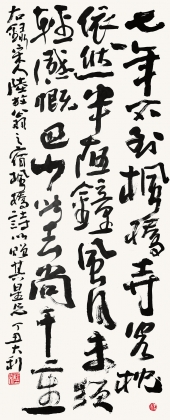 七年不到楓橋寺客枕
依然半夜鐘風月未須
輕感慨巴山此去尚千重
右録宋人陸放翁之宿楓橋詩以 丁丑大利